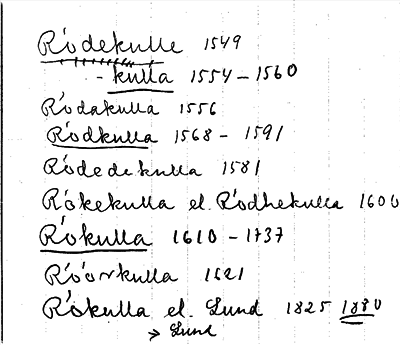 Rödekulle 1549
- kulla 1554 - 1560
Rödakulla 1556
Rödkulla 1568 - 1591
Rödedekulla 1581
Rökekulla el. Rödhekulla 1600
Rökulla 1610 - 1737
1621
Rökulla el. Lund 1825 1880
→ Lund